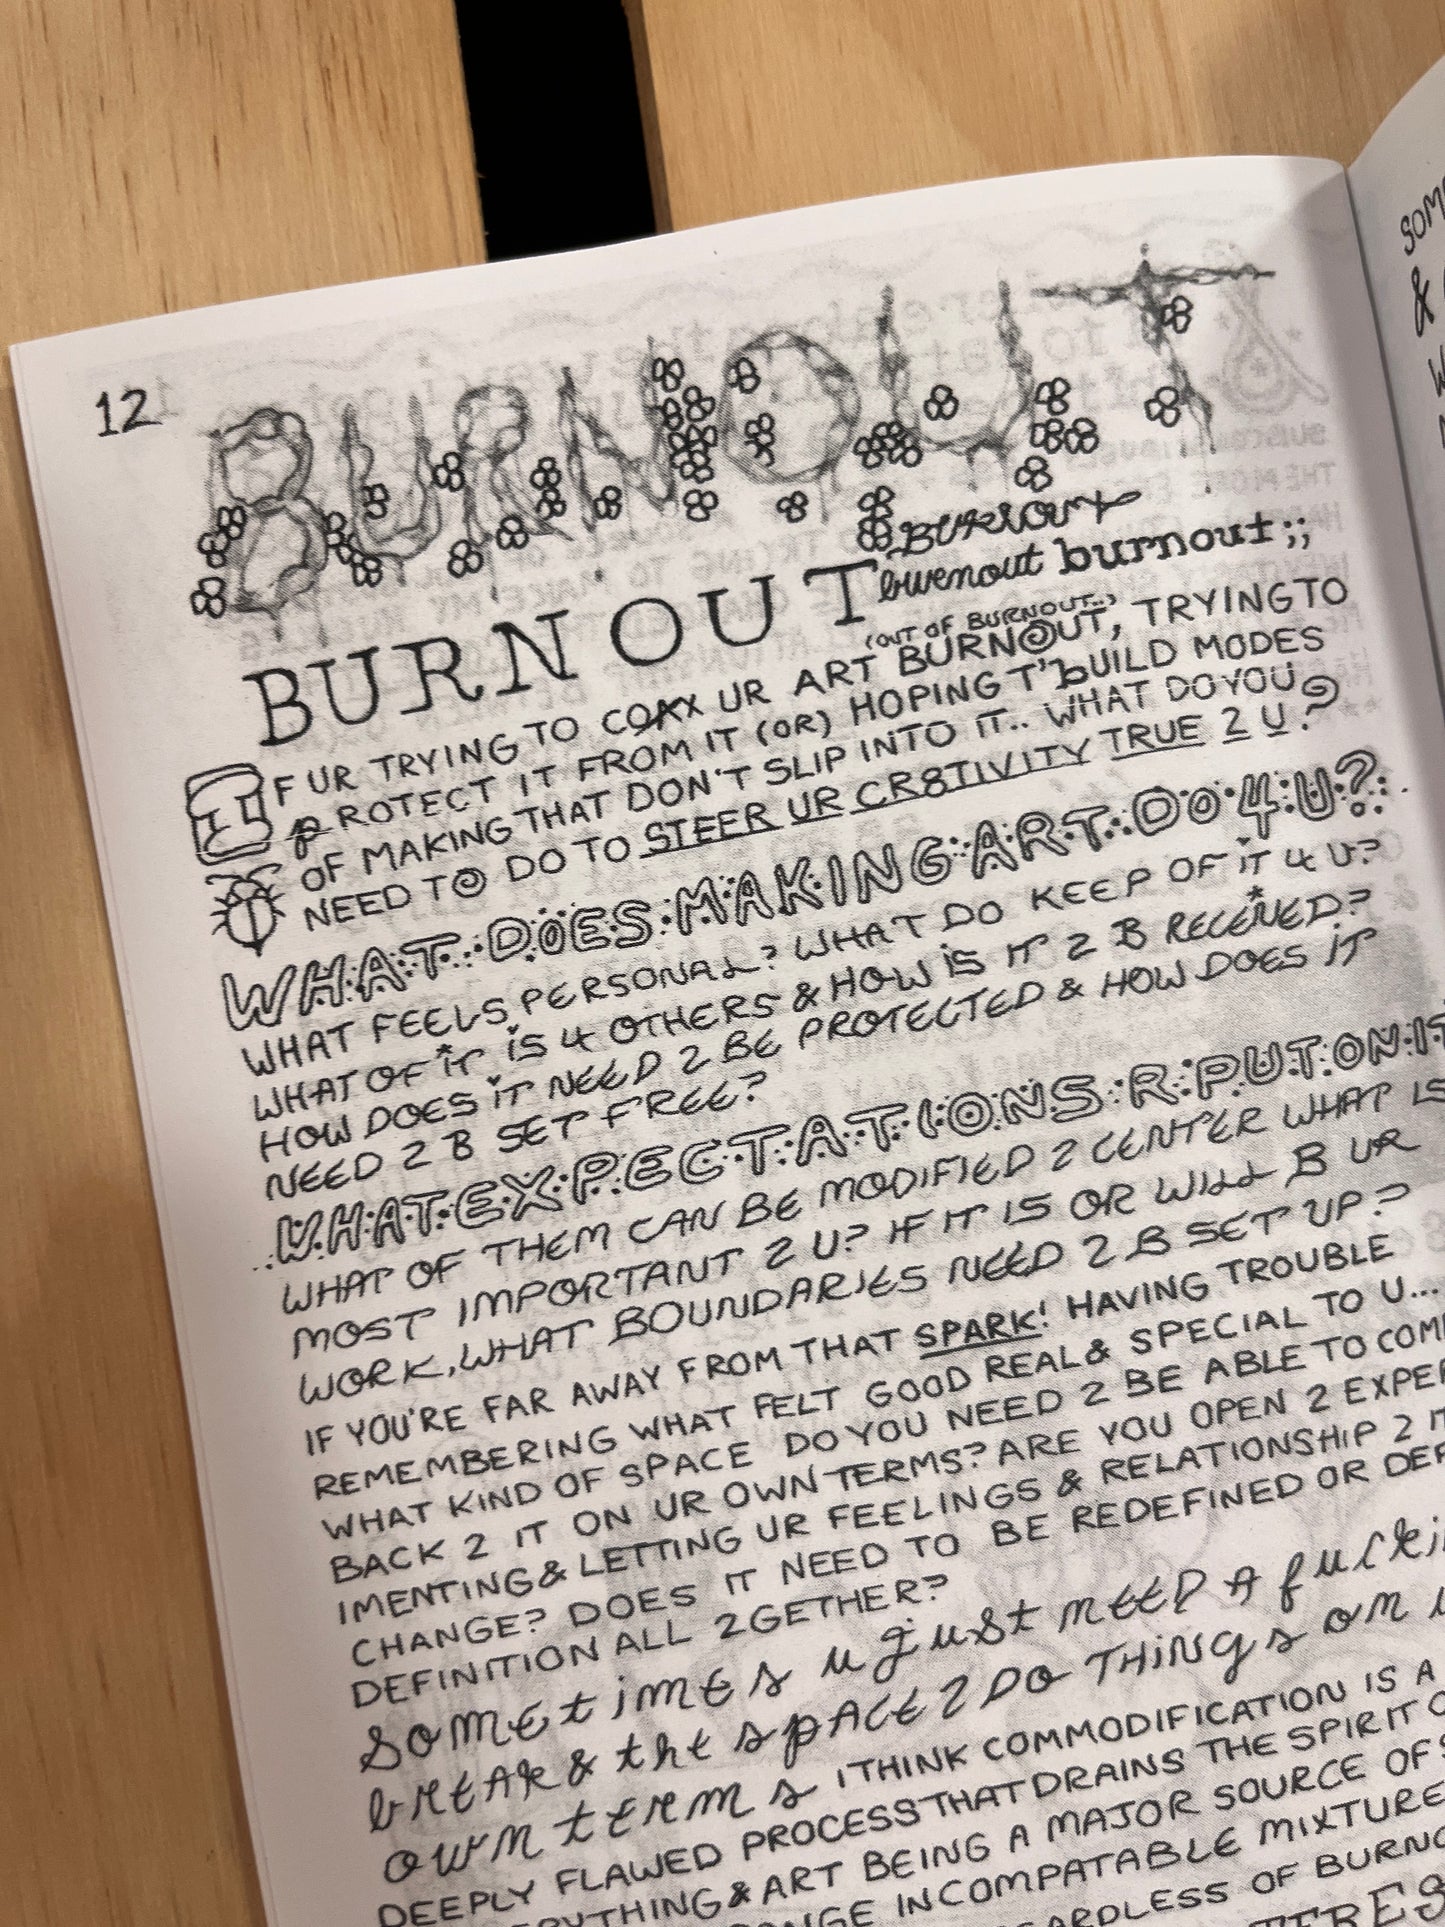 12
BURNOUT
BURNOUT
BURNOUT burnout burnout;;
(OUT OF BURNOUT..)
IF UR TRYING TO COAX UR ART BURNOUT, TRYING TO
PROTECT IT FROM IT (OR) HOPING T'BUILD MODES
OF MAKING THAT DON'T SLIP INTO IT.. WHAT DO YOU
NEED TO DO TO STEER UR CR8TIVITY TRUE 2 U?
WHAT DOES MAKING ART DO 4 U?
WHAT FEELS PERSONAL? WHAT DO KEEP OF iT 4 U?
WHAT OF iT iS 4 OTHERS & HOW iS IT 2 B RECEIVED?
HOW DOES iT NEED 2 BE PROTECTED & HOW DOES iT
NEED 2 B SET FREE?
WHAT EXPECTATIONS R PUT ON IT
WHAT OF THEM CAN BE MODIFIED 2 CENTER WHAT IS
MOST IMPORTANT 2 U? IF IT IS OR WILL B UR
WORK, WHAT BOUNDARIES NEED 2 B SET UP?
IF YOU'RE FAR AWAY FROM THAT SPARK! HAVING TROUBLE
REMEMBERING WHAT FELT GOOD REAL & SPECIAL TO U...
WHAT KIND OF SPACE DO YOU NEED 2 BE ABLE TO COM
BACK 2 IT ON UR OWN TERMS? ARE YOU OPEN 2 EXPER
IMENTING & LETTING UR FEELINGS & RELATIONSHIP 2 IT
CHANGE? DOES IT NEED TO BE REDEFINED OR DEF
DEFINITION ALL 2GETHER?
sometimes u just NEED A fucki
break & the spACE 2 DO THiNGs on
own terms I THINK COMMODIFICATION IS A
DEEPLY FLAWED PROCESS THAT DRAINS THE SPIRIT O
ERYTHING & ART BEING A MAJOR SOURCE OF
NGE INCOMPATABLE MIXTURE
ARDLESS OF BURNO
SOM
&
W